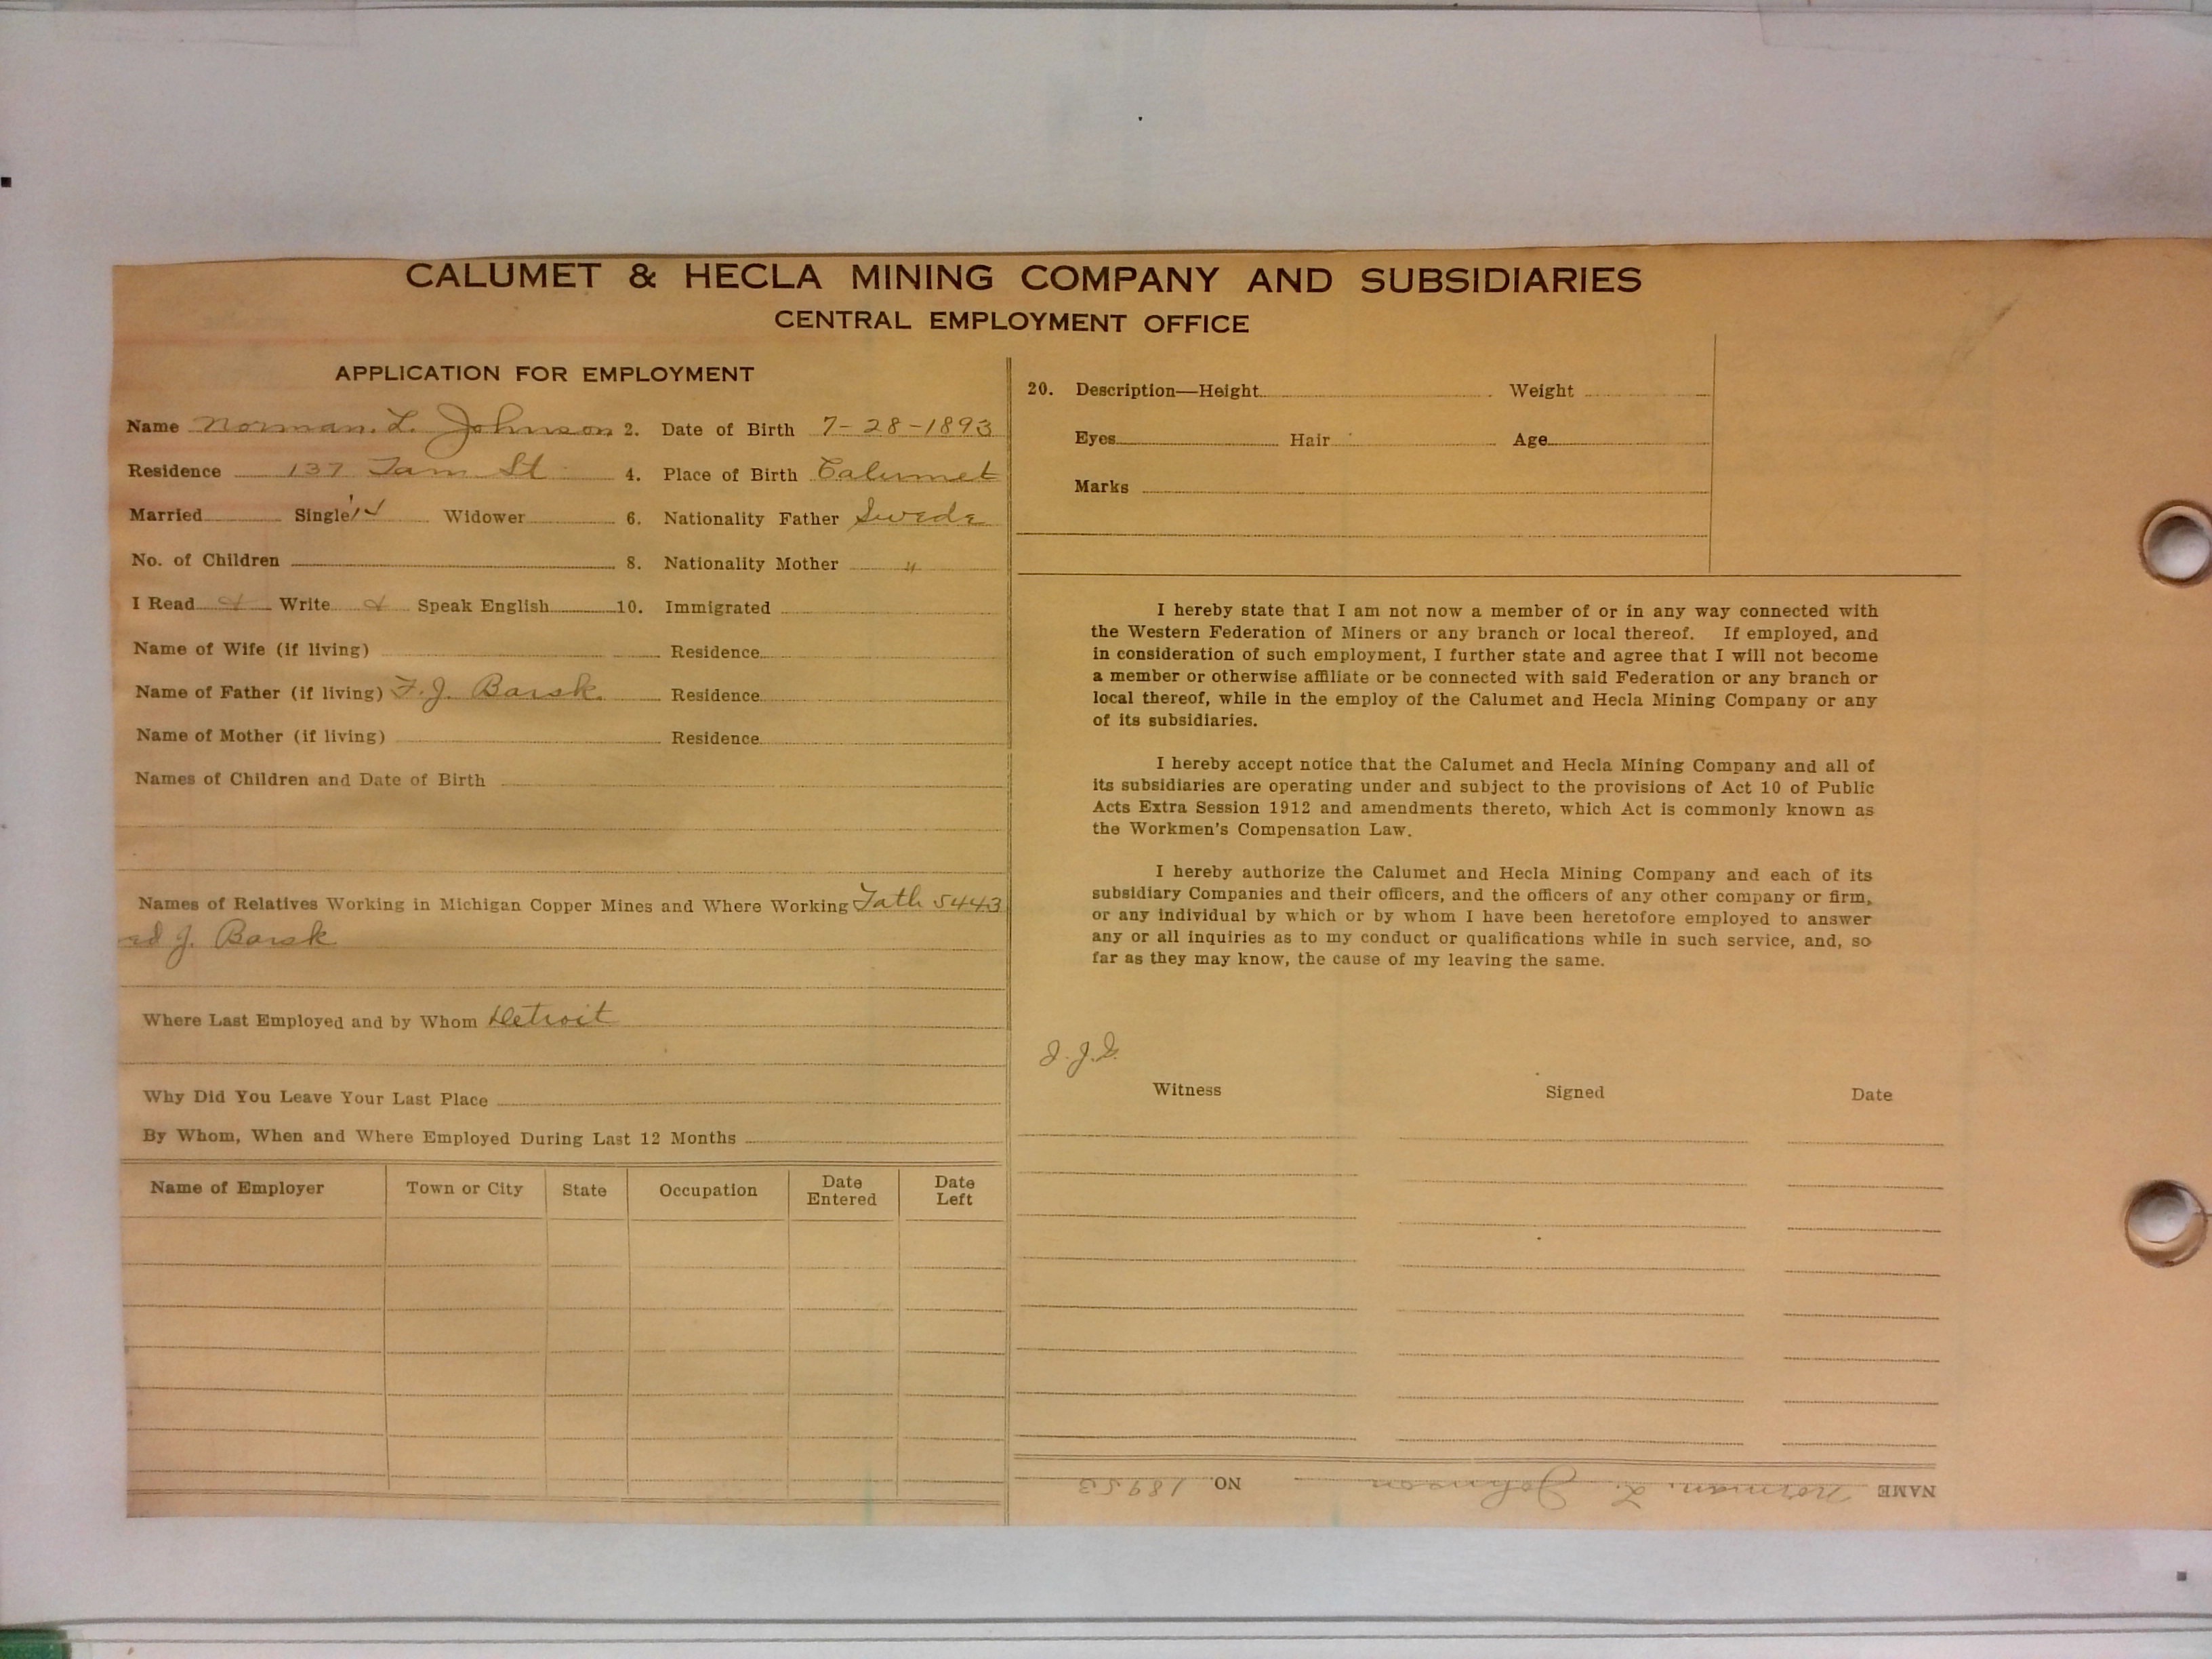 CALUMET & HECLA MINING COMPANY AND SUBSIDIARIES
CENTRAL EMPLOYMENT OFFICE
APPLICATION FOR EMPLOYMENT
Name Norman. L. Johnson 2. Date of Birth 7-28-1893
Residence 137 Tam St 4. Place of Birth Calumet
Married Single ✓ Widower 6. Nationality Father Swede
No. of Children 8. Nationality Mother "
I Read Write Speak English 10. Immigrated
Name of Wife (if living) Residence
Name of Father (if living) F.J. Barsk. Residence
Name of Mother (if living) Residence
Names of Children and Date of Birth
Names of Relatives Working in Michigan Copper Mines and Where Working Fath 5443
J. Barsk
Where Last Employed and by Whom Detroit
Why Did You Leave Your Last Place
By Whom, When and Where Employed During Last 12 Months
Name of Employer Town or City State Occupation Date Entered Date Left
20. Description—Height Weight
Eyes Hair Age
Marks
I hereby state that I am not now a member of or in any way connected with
the Western Federation of Miners or any branch or local thereof. If employed, and
in consideration of such employment, I further state and agree that I will not become
a member or otherwise affiliate or be connected with said Federation or any branch or
local thereof, while in the employ of the Calumet and Hecla Mining Company or any
of its subsidiaries.
I hereby accept notice that the Calumet and Hecla Mining Company and all of
its subsidiaries are operating under and subject to the provisions of Act 10 of Public
Acts Extra Session 1912 and amendments thereto, which Act is commonly known as
the Workmen's Compensation Law.
I hereby authorize the Calumet and Hecla Mining Company and each of its
subsidiary Companies and their officers, and the officers of any other company or firm,
or any individual by which or by whom I have been heretofore employed to answer
any or all inquiries as to my conduct or qualifications while in such service, and, so
far as they may know, the cause of my leaving the same.
Witness Signed Date
NAME Norman. L. Johnson NO. 18953